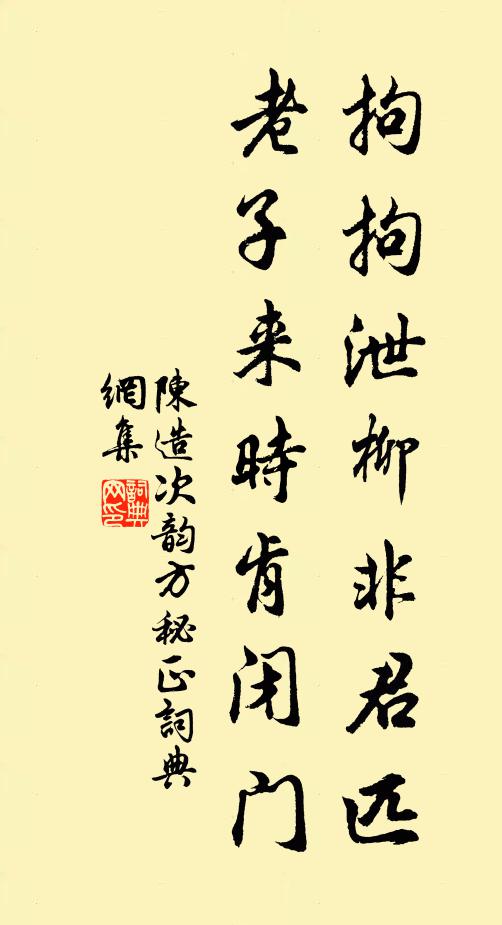 拘拘泄柳非君匹
老子来時肯闭门
陳造次韵方秘正詞典
網集
詞典網印